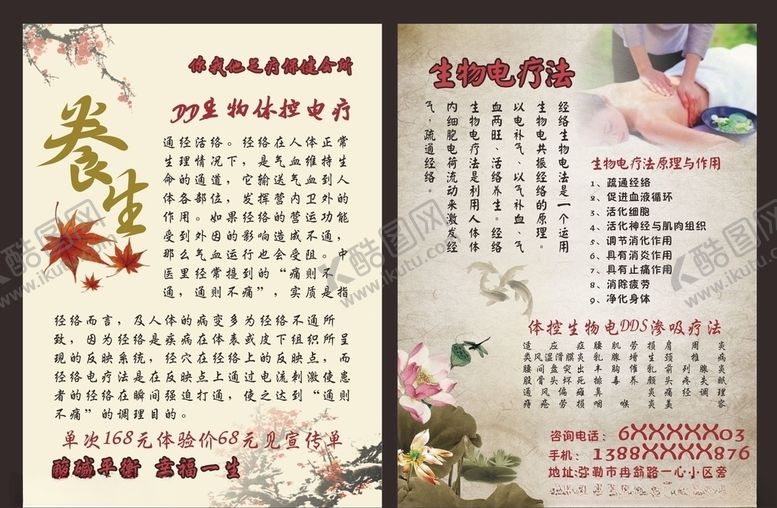 你我他足疗保健会所
养生
DD生物体控电疗
通经活络。经络在人体正常
生理情况下，是气血维持生
命的通道，它输送气血到人
体各部位，发挥营内卫外的
作用。如果经络的营运功能
受到外因的影响造成不通，
那么气血运行也会受阻。中
医里经常提到的“痛则不
通，通则不痛”，实质是指
经络而言，及人体的病变多为经络不通所
致，因为经络是疾病在体表或皮下组织所呈
现的反映系统，经穴在经络上的反映点，而
经络电疗法是在反映点上通过电流刺激使患
者的经络在瞬间强迫打通，使之达到“通则
不痛”的调理目的。
单次168元体验价68元见宣传单
酸碱平衡 幸福一生
生物电疗法
经络生物电法是一个运用
生物电共振经络的原理。
以电补气、以气补血、气
血两旺、活络养生。经络
生物电疗法是利用人体经
内细胞电荷流动来激发经
气，疏通经络。
生物电疗法原理与作用
1、疏通经络
2、促进血液循环
3、活化细胞
4、活化神经与肌肉组织
5、调节消化作用
6、具有消炎作用
7、具有止痛作用
8、消除疲劳
9、净化身体
体控生物电DDS渗吸疗法
咨询电话：6XXXXXX03
手机：1388XXXX876
地址：弥勒市冉翁路一心小区旁
酷图网
www.ikutu.com